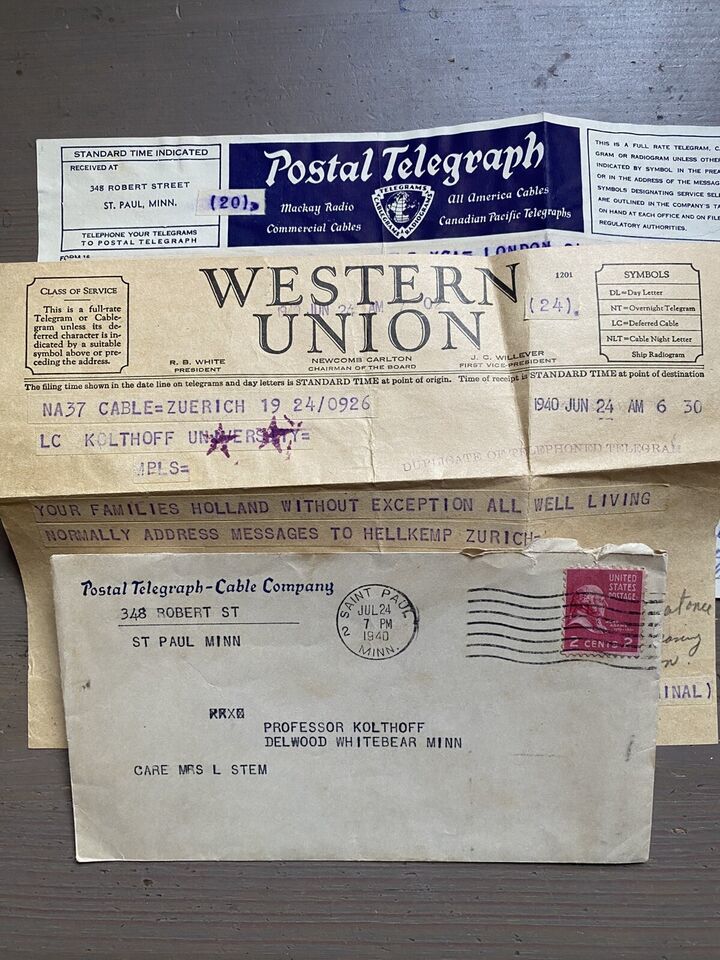 STANDARD TIME INDICATED
RECEIVED AT
348 ROBERT STREET
ST. PAUL, MINN.
TELEPHONE YOUR TELEGRAMS
TO POSTAL TELEGRAPH
FORM 16
(20).
Postal Telegraph
Mackay Radio
Commercial Cables
All America Cables
Canadian Pacific Telegraphs
TELEGRAMS
CABLEGRAMS
RADIOGRAMS
THIS IS A FULL RATE TELEGRAM, C
GRAM OR RADIOGRAM UNLESS OTHE
INDICATED BY SYMBOL IN THE PREA
OR IN THE ADDRESS OF THE MESSAG
SYMBOLS DESIGNATING SERVICE SELE
ARE OUTLINED IN THE COMPANY'S TA
ON HAND AT EACH OFFICE AND ON FIL
REGULATORY AUTHORITIES.
LONDON
CLASS OF SERVICE
This is a full-rate
Telegram or Cable-
gram unless its de-
ferred character is in-
dicated by a suitable
symbol above or pre-
ceding the address.
WESTERN
UNION
1940 JUN 24 AM
R. B. WHITE
PRESIDENT
NEWCOMB CARLTON
CHAIRMAN OF THE BOARD
J. C. WILLEVER
FIRST VICE-PRESIDENT
1201
(24).
SYMBOLS
DL=Day Letter
NT=Overnight Telegram
LC=Deferred Cable
NLT=Cable Night Letter
Ship Radiogram
The filing time shown in the date line on telegrams and day letters is STANDARD TIME at point of origin. Time of receipt is STANDARD TIME at point of destination
NA37 CABLE=ZUERICH 19 24/0926
1940 JUN 24 AM 6 30
LC KOLTHOFF UNIVERSITY=
MPLS=
DUPLICATE OF TELEPHONED TELEGRAM
YOUR FAMILIES HOLLAND WITHOUT EXCEPTION ALL WELL LIVING
NORMALLY ADDRESS MESSAGES TO HELLKEMP ZURICH=
at once
INAL)
Postal Telegraph-Cable Company
348 ROBERT ST
ST PAUL MINN
SAINT PAUL
JUL 24
7 PM
1940
MINN.
2
UNITED
STATES
POSTAGE
2 CENTS 2
RRX
PROFESSOR KOLTHOFF
DELWOOD WHITEBEAR MINN
CARE MRS L STEM